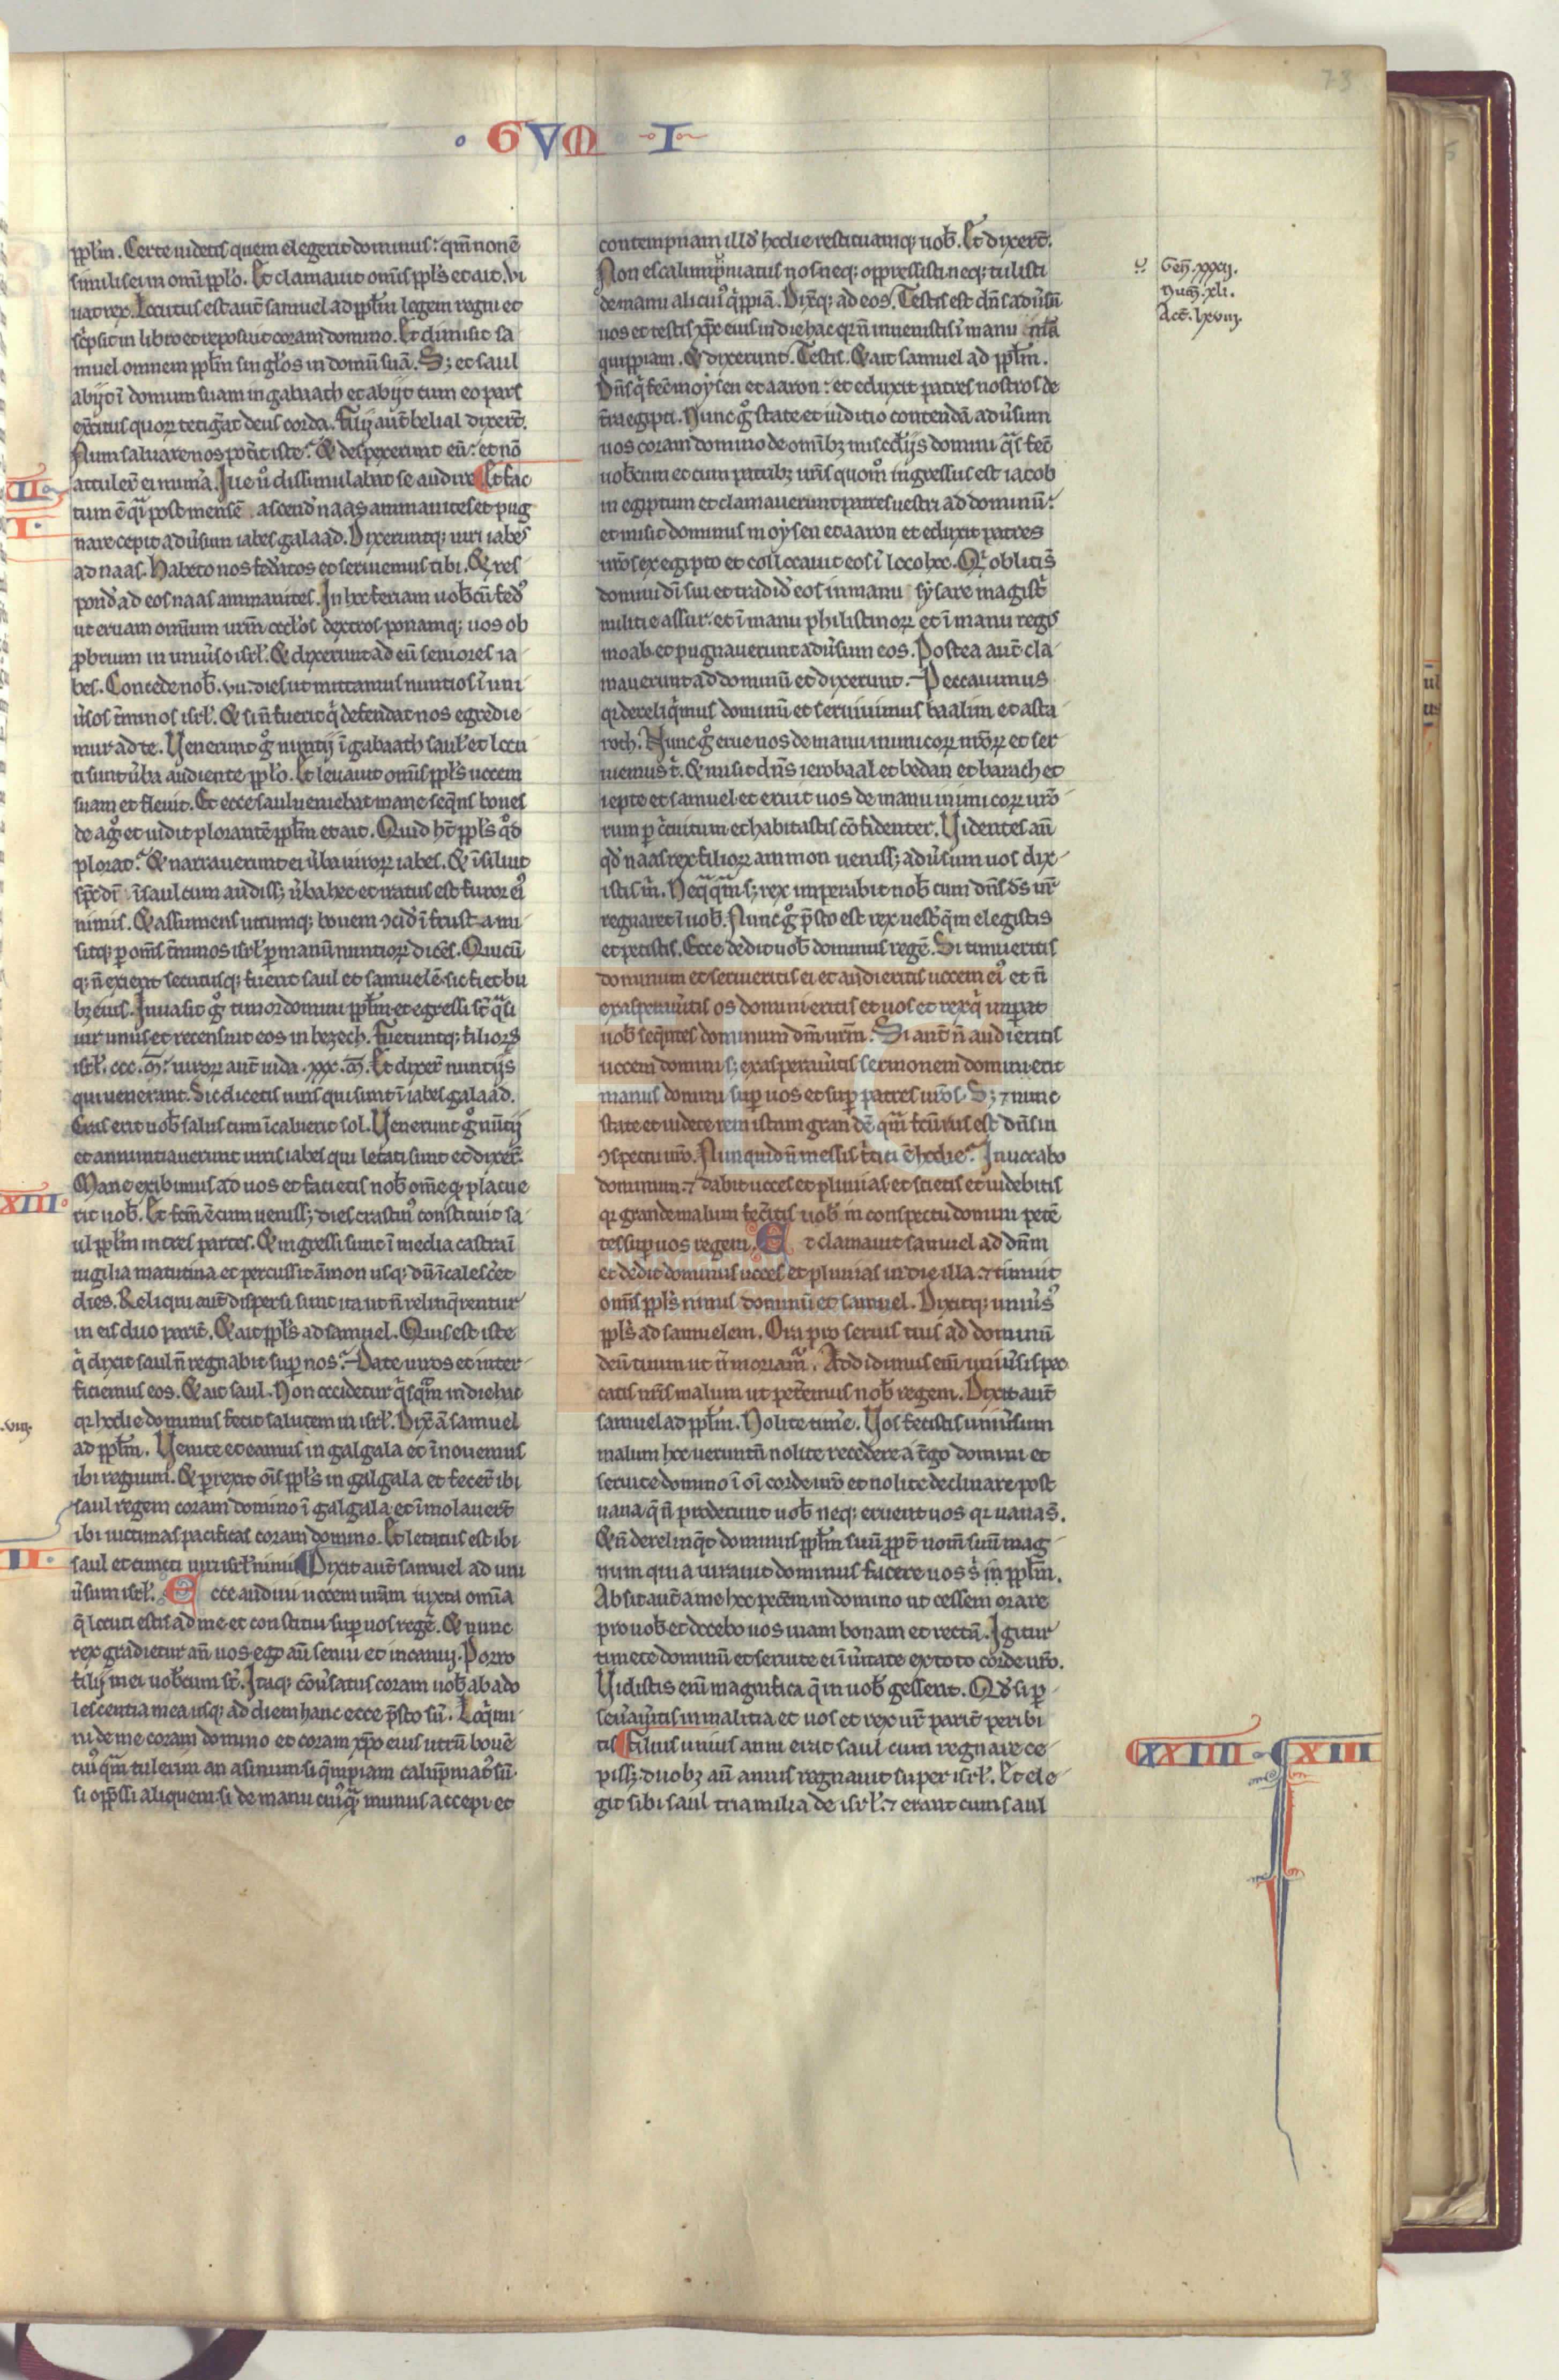 73
GUM I
ppl̄m. Certe uidetis quem elegerit dominus: qm̄ non ē
similis ei in om̄i ppl̄o. Et clamauit om̄is ppl̄s et ait. Vi
uat rex. Locutus est aut̄ samuel ad ppl̄m legem regni et
sc̄psit in libro et reposuit coram domino. Et dimisit sa
muel omnem ppl̄m singl̄os in domū suā. S; et saul
abijt ī domum suam in gabaath et abijt cum eo pars
exc̄itus quoꝝ tetiḡat deus corda. Filij aut̄ belial dixer̄t.
Num saluare nos pot̄it iste? Et despexerunt eū: et nō
attuler̄t ei num̄a. Ille u̅ dissimulabat se audire Et fac
tum ē q̄i post mensē ascend̄ naas ammanites et pug
nare cepit adūsum iabes galaad. Dixeruntq; uiri iabes
ad naas. Habeto nos fed̄atos et seruiemus tibi. Et res
pond̄ ad eos naas ammanites. In hoc feriam uob̄cū fed̾
ut eruam om̄ium ur̄m ocl̄os dextros ponamq; uos ob
ꝓbrium in uniūso isrl̄. Et dixerunt ad eū seniores ia
bes. Concede nob̄. vii. dies ut mittamus nuntios ī uni
ūsos t̄minos isrl̄. Et si n̄ fuerit q̄ defendat nos egredie
mur ad te. Venerunt g̊ nuntij ī gabaath saul̄ et locu
ti sunt ūba audiente ppl̄o. Et leuauit om̄is ppl̄s uocem
suam et fleuit. Et ecce saul ueniebat mane seq̄ns boues
de ag̊ et uidit plorantē ppl̄m et ait. Quid h̄t ppl̄s q̊d
plorat? Et narrauerunt ei ūba uiroꝝ iabes. Et īsiluit
sp̄c dī ī saul cum audiss; ūba hec et iratus est furor ei̾
nimis. Et assumens utrumq; bouem ↄcid̄ ī frusta mi
sitq; p om̄s t̄minos isrl̄ p manū nuntioꝝ dicēs. Quicū
q; n̄ exierit secutusq; fuerit saul et samuelē sic fiet bu
bȝ eius. Inuasit g̊ timor domini ppl̄m et egressi st̄ q̄si
uir unus et recensuit eos in bezech. Fueruntq; filioꝝ
isrl̄. ccc. m̄. uiroꝝ aut̄ iuda. xxx. m̄. Et dixer̄t nuntijs
qui uenerant. Sic dicetis uiris qui sunt ī iabes galaad.
Cras erit uob̄ salus cum īcaluerit sol. Venerunt g̊ nūtij
et annuntiauerunt uiris iabes qui letati sunt et dixer̄t.
Mane exibimus ad uos et facietis nob̄ om̄e q̊ placue
rit uob̄. Et fcm̄ ē cum ueniss; dies crastin̾ constituit sa
ul ppl̄m in tres partes. Et ingressi sunt ī media castra ī
uigilia matutina et percussit āmon usq; dū īcalesc̄et
dies. Reliqui aut̄ dispersi sunt ita ut n̄ relinq̄rentur
in eis duo parit̄. Et ait ppl̄s ad samuel. Quis est iste
q̄ dixit saul n̄ regnabit sup nos? Date uiros et inter
ficiemus eos. Et ait saul. Non occidetur q̄sq̄m in die hac
qꝛ hodie dominus fecit salutem in isrl̄. Dix̄ ā samuel
ad ppl̄m. Venite et eamus in galgala et īnouemus
ibi regnum. Et perrexit ōis ppl̄s in galgala et fecer̄t ibi
saul regem coram domino ī galgala et īmolauer̄t
ibi uictimas pacificas coram domino. Et letatus est ibi
saul et cuncti uiri isrl̄ nimis Dixit aut̄ samuel ad uni
ūsum isrl̄. Ecce audiui uocem ur̄am iuxta omīa
q̄ locuti estis ad me et constitui sup uos regē. Et nunc
rex gradietur an̄ uos ego aū senui et incanui. Porro
filij mei uob̄cum st̄. Itaq; cōūsatus coram uob̄ ab ado
lescentia mea usq; ad diem hanc ecce p̄sto sū. Loq̄mi
ni de me coram domino et coram xp̄o eius utrū bouē
cui̾q̄m tulerim an asinum si q̄mpiam calūpniat̾ sū.
si opp̄ssi aliquem si de manu cui̾q̄ munus accepi et
II
I
XIII
.viii.
II
contempnam illd̄ hodie restituamq; uob̄. Et dixer̄t.
Non es calumpniatus nos neq; oppressisti neq; tulisti
de manu alicui̾ q̄ppiā. Dix̄q; ad eos. Testis est dn̄s adūsū
uos et testis xp̄c eius in die hac qꝛ n̄ inuenistis ī manu mā
quippiam. Et dixerunt. Testis. Et ait samuel ad ppl̄m.
Dn̄s q̄ fec̄ moysen et aaron: et eduxit patres nostros de
t̄ra egipti. Nunc g̊ state et iuditio contendā adūsum
uos coram domino de omībȝ misc̄dijs domini q̄s fec̄
uob̄cum et cum patribȝ ur̄is quom̊ ingressus est iacob
in egiptum et clamauerunt patres uestri ad dominū:
et misit dominus moysen et aaron et eduxit patres
ur̄os ex egipto et collocauit eos ī loco hoc. Qꝛ oblitis̄
domini dī sui et tradid̄ eos in manu sysare magist̄
militie assur: et ī manu philistinoꝝ et ī manu regis
moab et pugnauerunt adūsum eos. Postea aut̄ cla
mauerunt ad dominū et dixerunt. Peccauimus
qꝛ dereliq̄mus dominū et seruiuimus baalim et asta
roth. Nunc g̊ erue nos de manu inimicoꝝ nr̄oꝝ et ser
uiemus t̄. Et misit dn̄s ierobaal et bedan et barach et
iepte et samuel et eruit uos de manu inimicoꝝ ur̄o
rum p c̄cuitum et habitastis cōfidenter. Videntes aū
qd̄ naas rex filioꝝ ammon ueniss; adūsum uos dix
istis m̄. Neq̄q̄m s; rex imperabit nob̄ cum dn̄s d̄s ur̄
regnaret ī uob̄. Nunc g̊ p̄sto est rex uest̄ q̄m elegistis
et petistis. Ecce dedit uob̄ dominus regē. Si timueritis
dominum et serueritis ei et audieritis uocem ei̾ et n̄
exasperaūitis os domini eritis et uos et rex q̄ imp̄at
uob̄ seq̄ntes dominum dm̄ ur̄m. Si aut̄ n̄ audieritis
uocem domini s; exasperaūitis sermonem domini erit
manus domini sup uos et sup patres ur̄os. S; ⁊ nunc
state et uidete rem istam grandē q̄m fcūrus est dn̄s in
ↄspectu ur̄o. Nunquid n̄ messis t̄tici ē hodie? Inuocabo
dominum ⁊ dabit uoces et pluuias et scietis et uidebitis
qꝛ grande malum fec̄itis uob̄ in conspectu domini petē
tes sup uos regem. Et clamauit samuel ad dn̄m
et dedit dominus uoces et pluuias in die illa. ⁊ timuit
om̄is ppl̄s nimis dominū et samuel. Dixitq; uniūs̾
ppl̄s ad samuelem. Ora pro seruis tuis ad dominū
deū tuum ut n̄ moriam̄. Addidimus enī uniūsis pec
catis nr̄is malum ut pet̄emus nob̄ regem. Dixit aut̄
samuel ad ppl̄m. Nolite tim̄e. Vos fecistis uniūsum
malum hoc ueruntn̄ nolite recedere a t̄go domini et
seruite domino ī oī corde ur̄o et nolite declinare post
uana q̄ n̄ proderunt uob̄ neq; eruent uos qꝛ uana s̄.
Et n̄ derelinq̄t dominus ppl̄m suū ppt̄ nom̄ suū mag
num quia iurauit dominus facere uos s̄ in ppl̄m.
Absit aut̄ a me hoc pecc̄m in domino ut cessem orare
pro uob̄ et docebo uos uiam bonam et rectā. Igitur
timete dominū et seruite ei ī ūitate ex toto corde ur̄o.
Vidistis enī magnifica q̄ in uob̄ gesserit. Qd̄ si p
seūaūitis in malitia et uos et rex ur̄ parit̄ peribi
tis Filius unius anni erat saul cum regnare ce
piss; duobȝ aū annis regnauit super isrl̄. Et ele
git sibi saul tria milia de isrl̄. ⁊ erant cum saul
Gen̄. xxxij.
Num̄. xli.
Act̄. lxviij.
XXIIII XIII